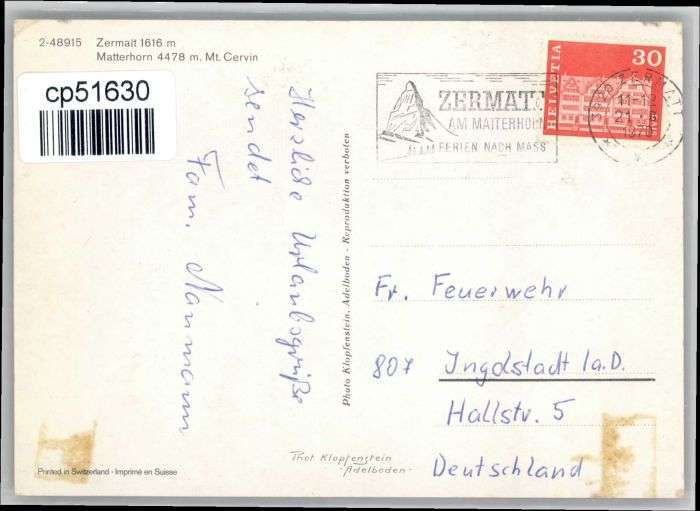 2-48915 Zermatt 1616 m
Matterhorn 4478 m. Mt. Cervin
cp51630
Herzliche Urlaubsgrüße
sendet
Fam. Naumann
Photo Klopfenstein, Adelboden - Reproduktion verboten
ZERMATT
AM MATTERHORN
FERIEN NACH MASS
HELVETIA
30
3920 ZERMATT
11-12
Fr. Feuerwehr
807 Ingolstadt a.D.
Hallstr. 5
Deutschland
Phot. Klopfenstein
Adelboden
Printed in Switzerland · Imprimé en Suisse